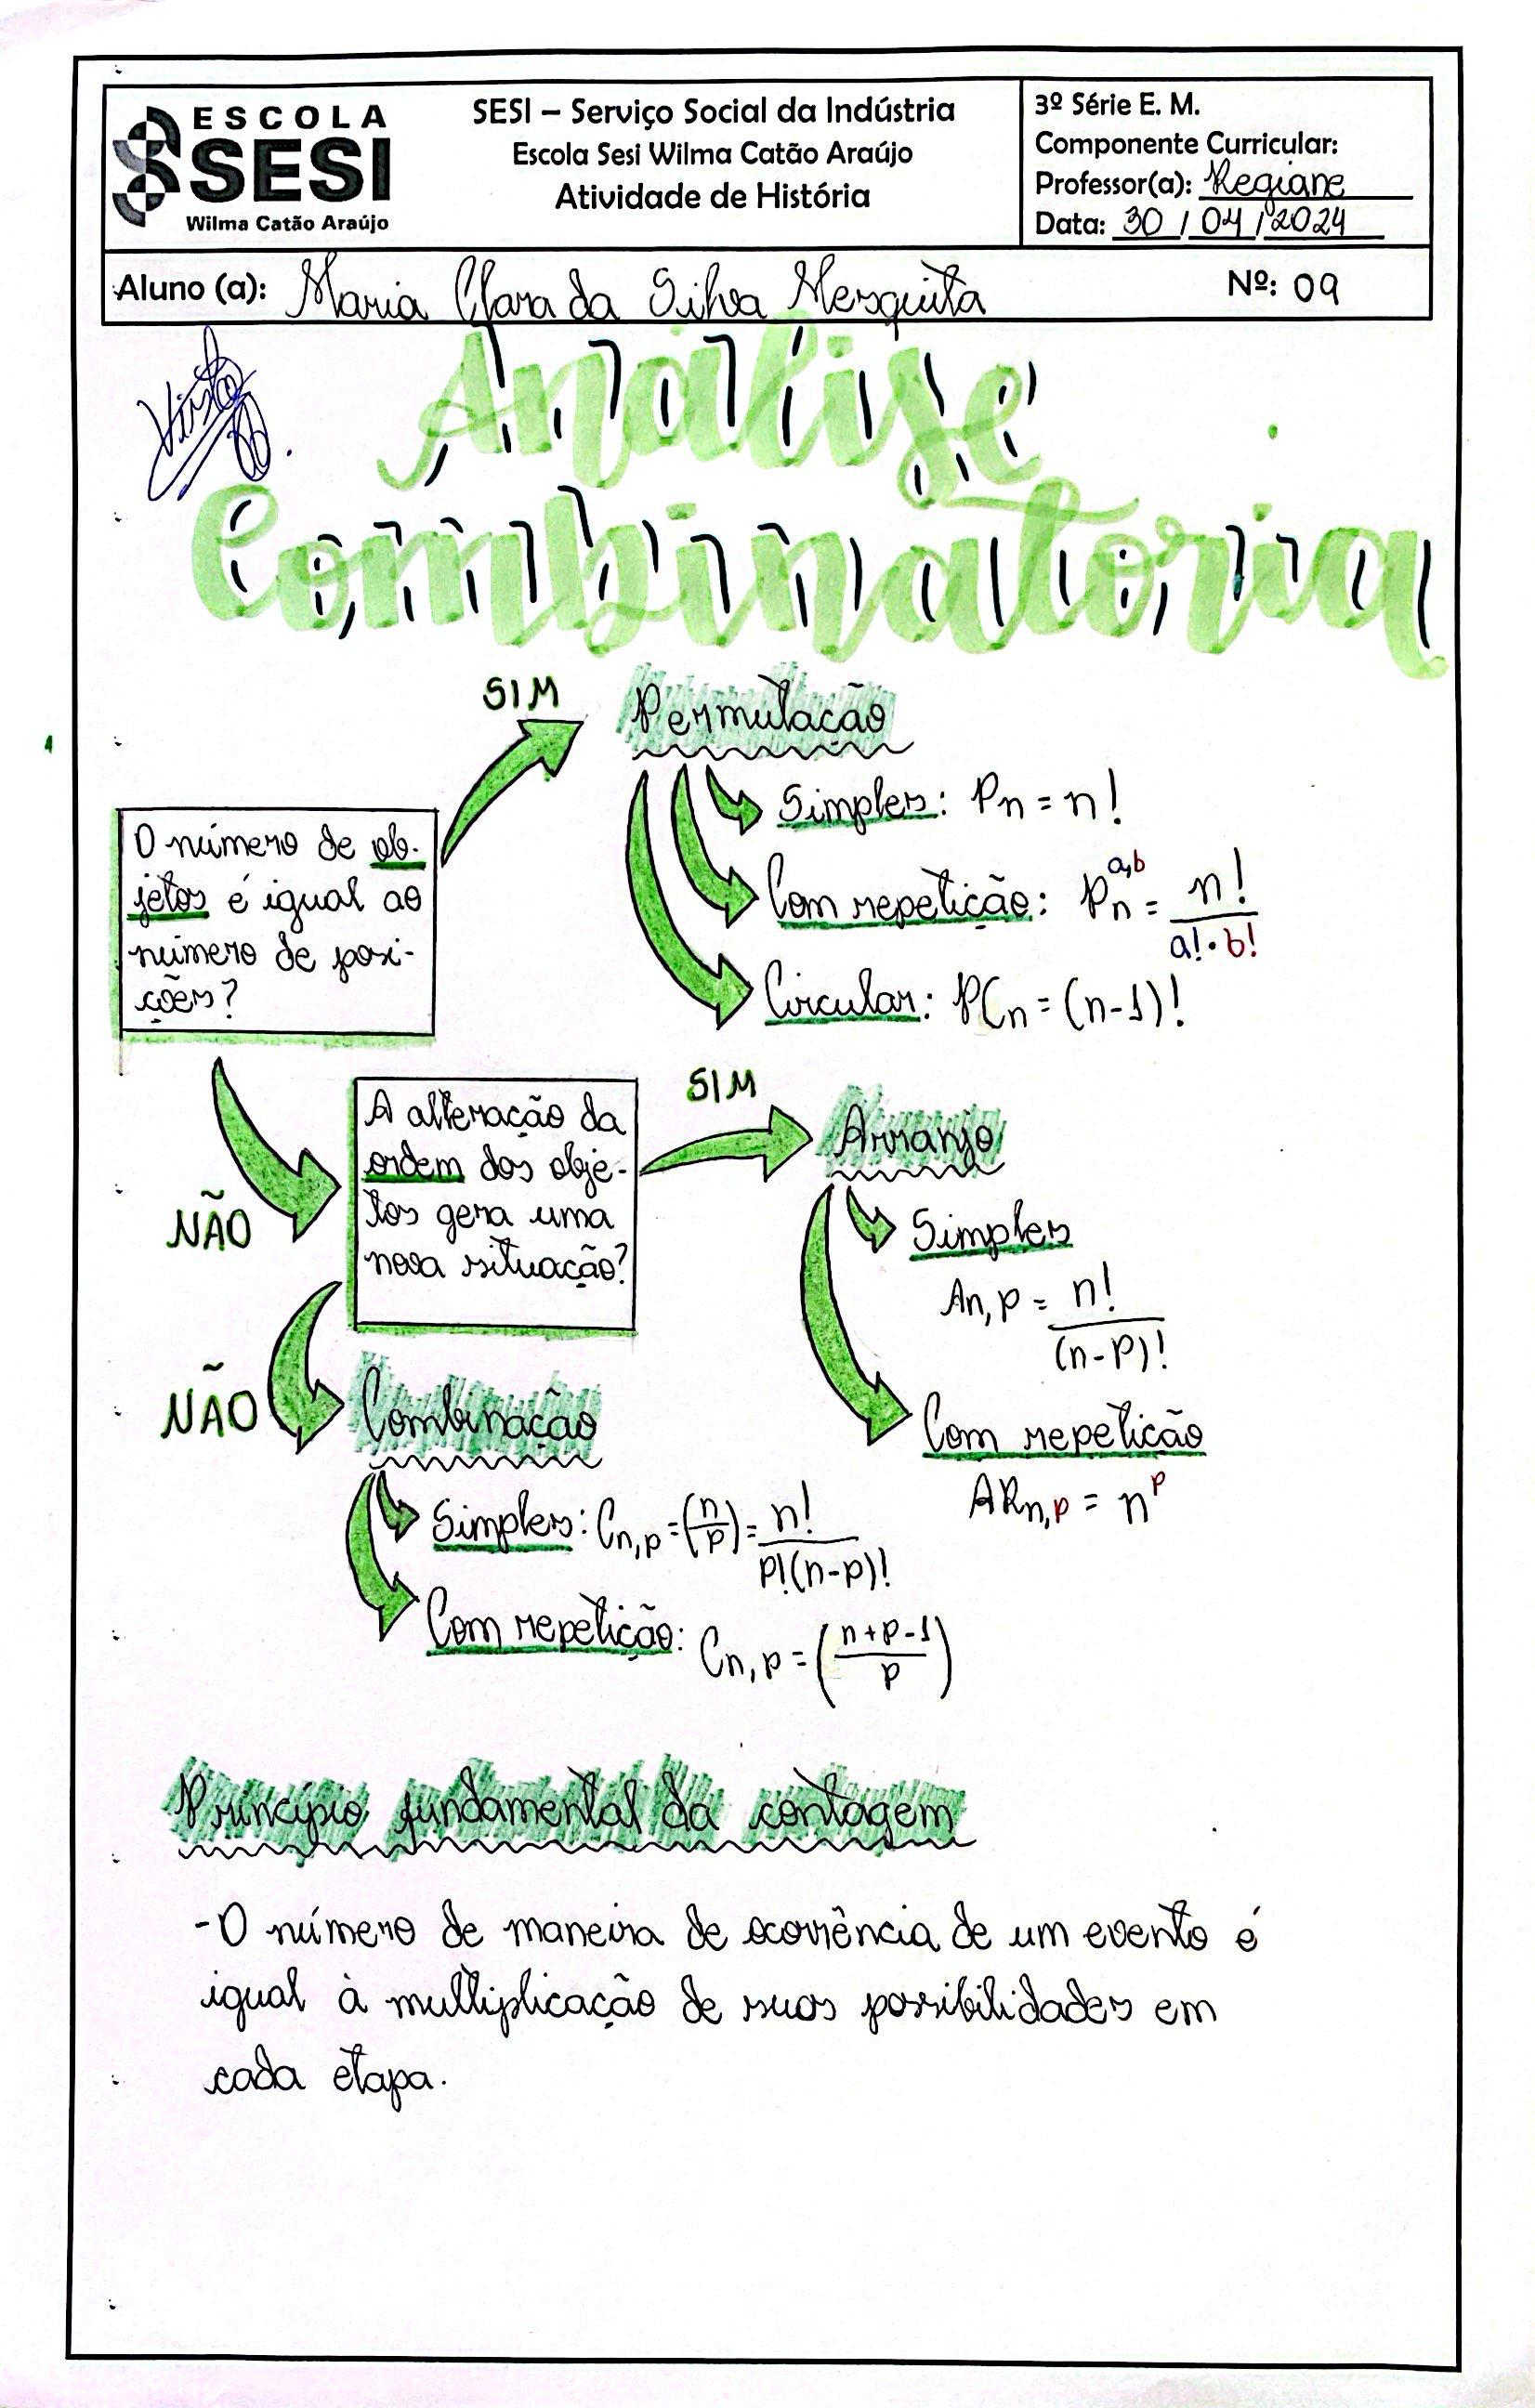 ESCOLA
SESI
Wilma Catão Araújo
SESI – Serviço Social da Indústria
Escola Sesi Wilma Catão Araújo
Atividade de História
3º Série E. M.
Componente Curricular:
Professor(a): Regiane
Data: 30/04/2024
Aluno (a): Maria Clara da Silva Mesquita
Nº: 09
Visto
Análise
Combinatoria
SIM
Permutação
Simples: Pn = n!
Com repetição: Pn^a,b = n! / a!·b!
Circular: PCn = (n-1)!
O número de ob-
jetos é igual ao
número de posi-
ções?
NÃO
A alteração da
ordem dos obje-
tos gera uma
nova situação?
SIM
Arranjo
Simples
An,p = n! / (n-p)!
Com repetição
ARn,p = n^p
NÃO
Combinação
Simples: Cn,p = (n/p) = n! / p!(n-p)!
Com repetição: Cn,p = (n+p-1 / p)
Princípio fundamental da contagem
-O número de maneira de ocorrência de um evento é
igual à multiplicação de suas possibilidades em
cada etapa.